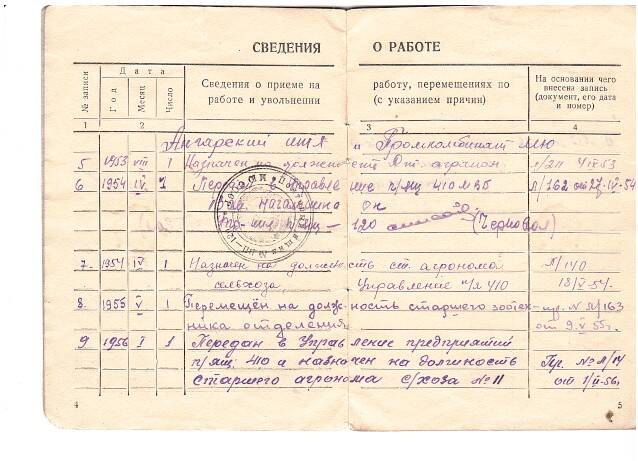 СВЕДЕНИЯ О РАБОТЕ
№ записи
Дата
Год
Месяц
Число
Сведения о приеме на работу, перемещениях по
работе и увольнении (с указанием причин)
На основании чего
внесена запись
(документ, его дата
и номер)
1 2 3 4
Ангарский и Промкомбинат
5 1953 VIII 1 Назначен на должность Ст. агроном
6 1954 IV 1 Передан в Управление п/ящ 410 МВД л/162 от 27-IV-54
120 (Чернова)
7. 1954 IV 1 Назначен на должность ст. агронома л/140
сельхоза, Управление п/я 410 13/V-54.
8. 1955 V 1 Перемещён на должность старшего зоотех- пр. № л/163
ника отделения от 9.V.55г.
9 1956 I 1 Передан в Управление предприятий
п/ящ. 410 и назначен на должность Пр. № л/14
старшего агронома с/хоза № 11
4 5